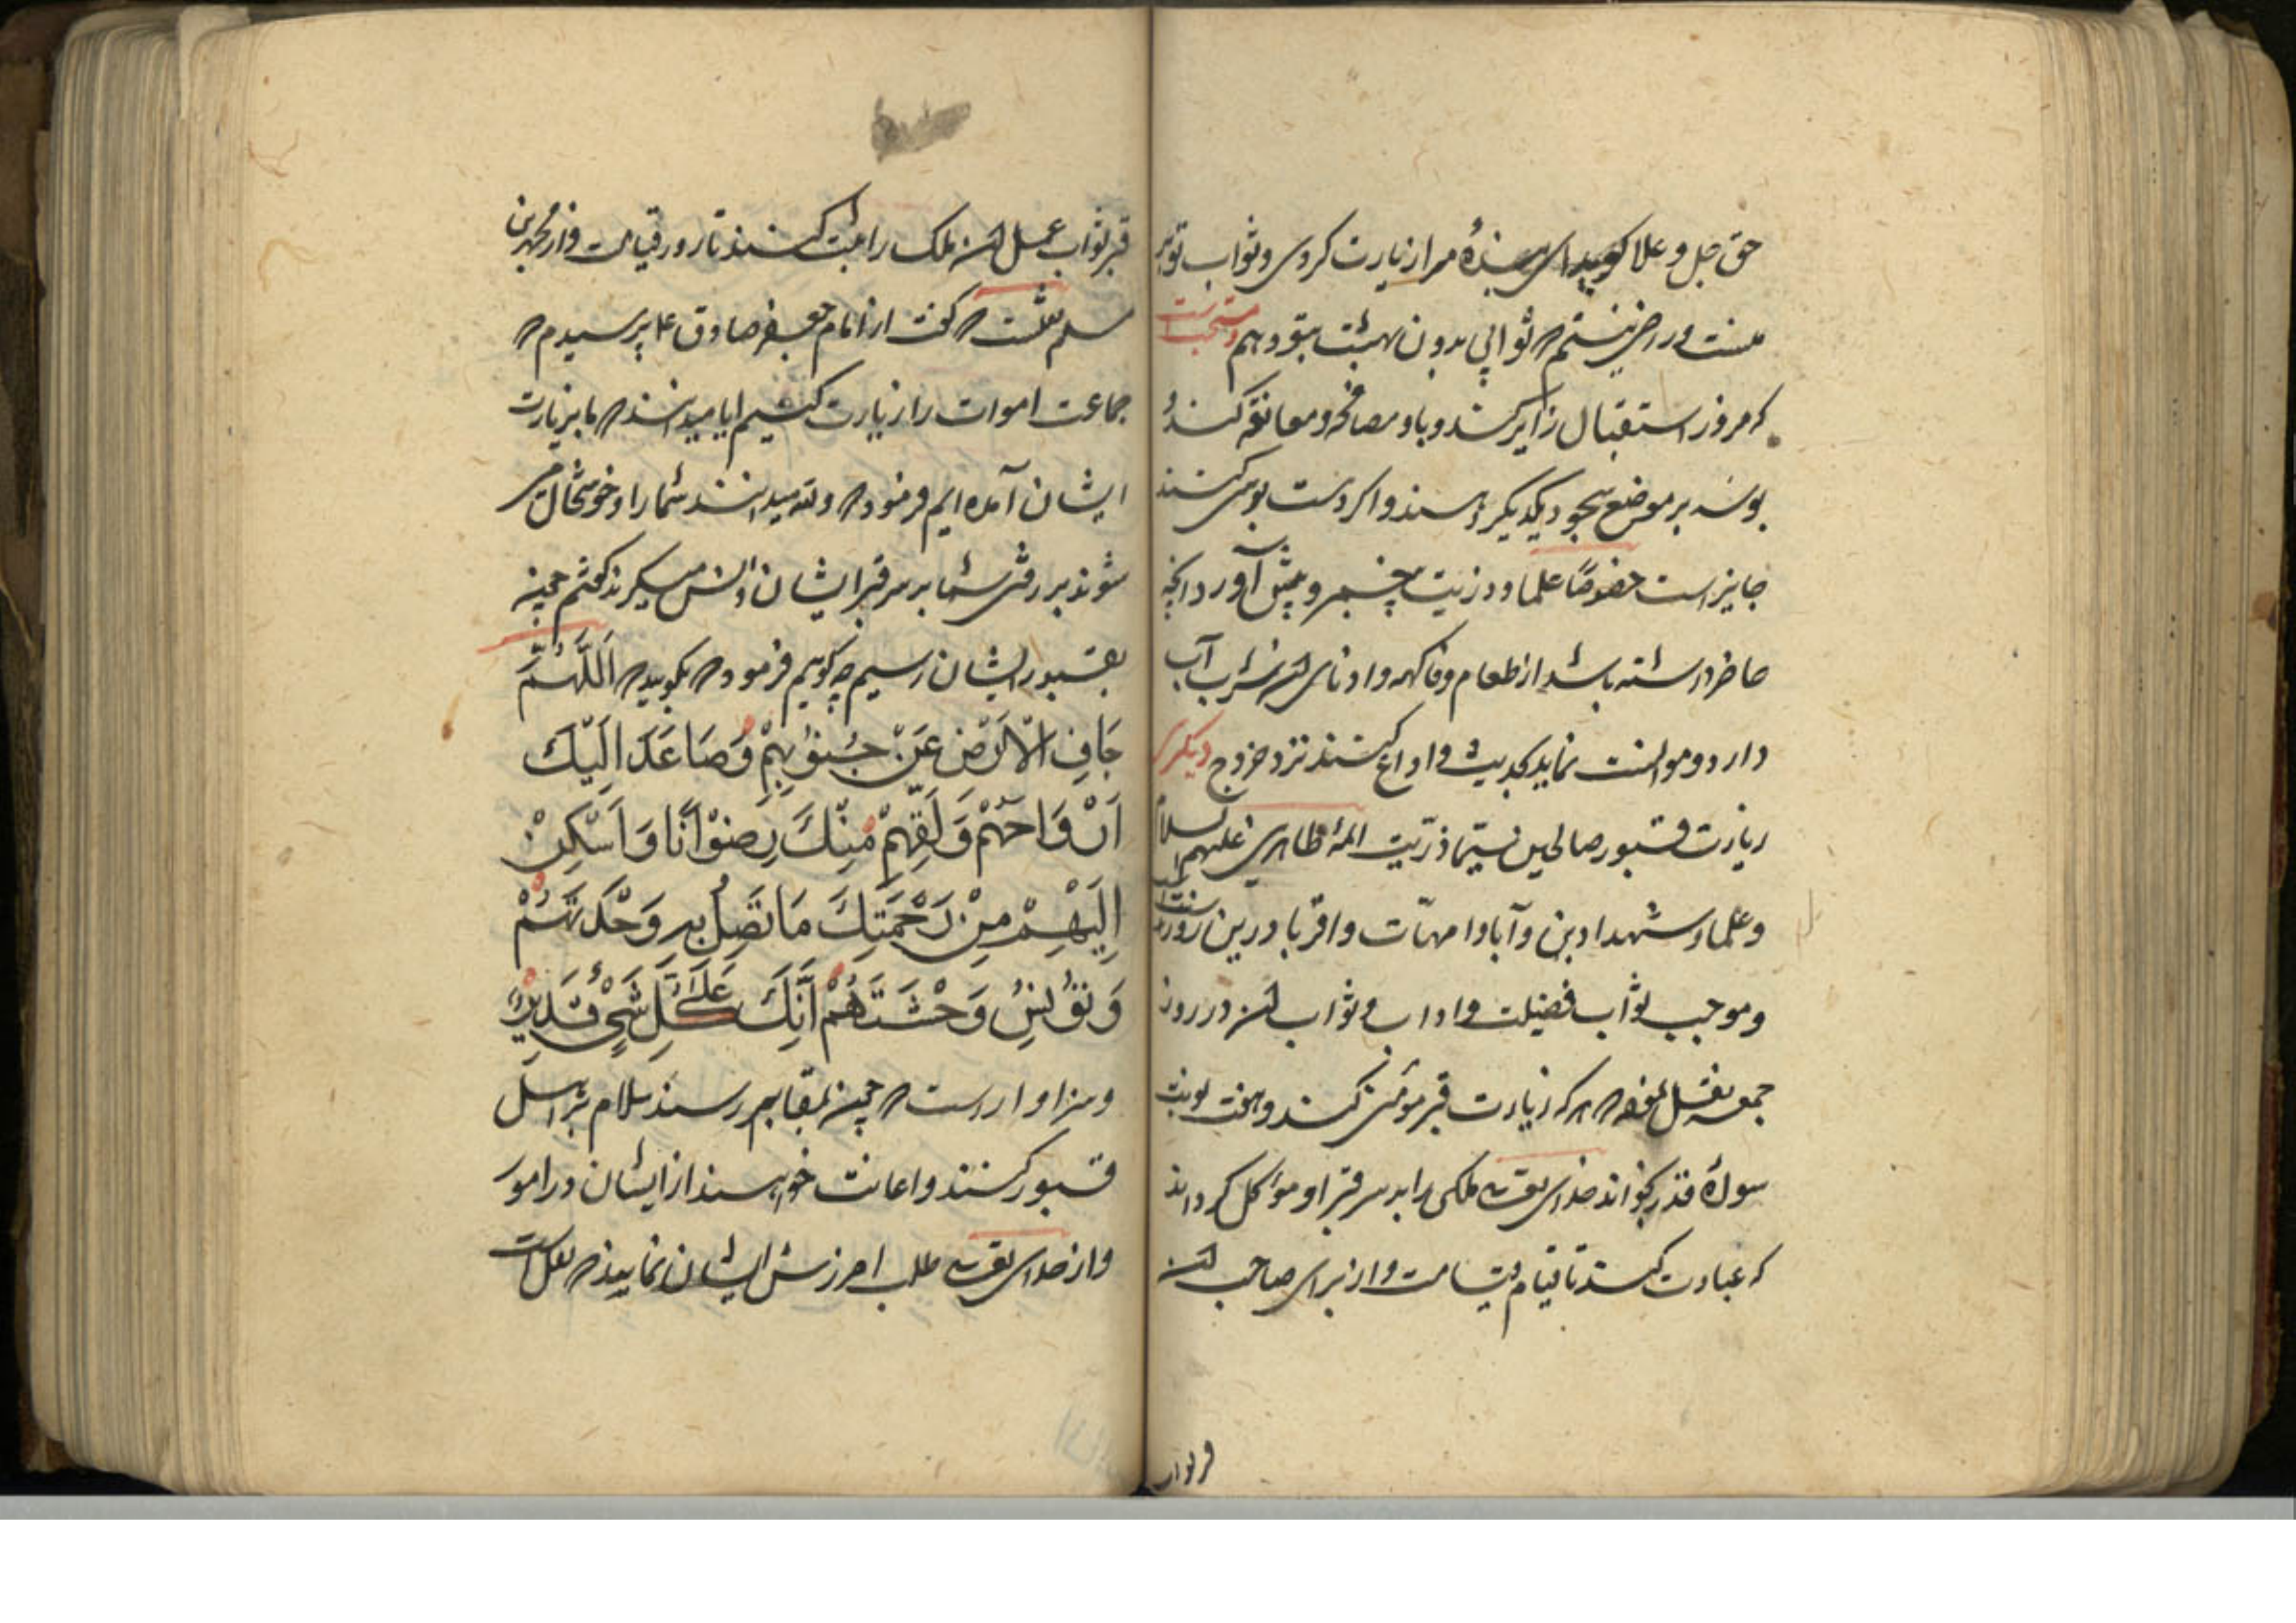 حق جل و علا کوید ای بندهٔ مرا زیارت کردی و ثواب تو بر
منست و راضی نیستم که ثوابی بدون بهشت بتو دهم و مستحب است
که مرور استقبال زایر کنند و با او مصافحه و معانقه کنند و
بوسه بر موضع سجود یکدیکر دهند و اکر دست بوسی کنند
جایز است خصوصا علما و ذریت پیغمبر و پیش آورد آنچه
حاضر داشته باشد از طعام و فاکهه و ادنای آن شرب آب
دارد و موانست نماید بحدیث و اوداع کنند نزد خروج دیکری
زیارت قبور صالحین سیما ذریت ائمه اطهارین علیهم السلام
و علما و شهدا و دین و آبا و امهات و اقربا درین روز سنت است
و موجب ثواب فضیلت و اداب و ثواب آن در روز
جمعه هر که زیارت قبر مؤمنی کند و هفت نوبت
سورهٔ قدر بخواند خدای تعالی ملکی را بر سر قبر او موکل کرداند
که عبادت کند تا قیام قیامت و از برای صاحب آن
قبر ثواب عمل آن ملک را ثبت کنند تا روز قیامت و از محمد بن
مسلم است که کفت از امام جعفر صادق ع پرسیدم که
جماعت اموات را زیارت کنیم ایا میدانند که ما بزیارت
ایشان آمده ایم فرمود که والله میدانند شما را و خوشحال می
شوند برفتن شما بر سر قبر ایشان و انس میکیرند کفتم چون
بقبور ایشان رسیم چه کوییم فرمود که بکویید که اَللَّهُمَّ
جَافِ الْاَرْضَ عَنْ جُنُوبِهِمْ وَصَاعِدْ اِلَيْكَ
اَرْوَاحَهُمْ وَلَقِّهِمْ مِنْكَ رِضْوَانًا وَاَسْكِنْ
اِلَيْهِمْ مِنْ رَحْمَتِكَ مَا تَصِلُ بِهِ وَحْدَتَهُمْ
وَتُؤْنِسُ وَحْشَتَهُمْ اِنَّكَ عَلَىٰ كُلِّ شَيْءٍ قَدِيرٌ
و سزاوار است که چون بمقابر رسند سلام بر اهل
قبور کنند و اعانت خواهند از ایشان در امور
و از خدای تعالی طلب امرزش ایشان نمایند که